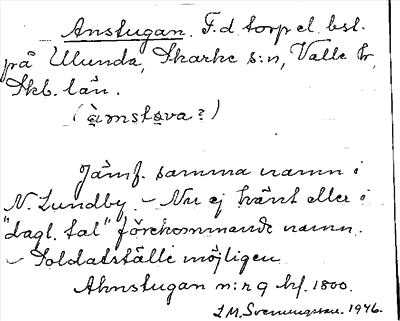 Anstugan. F.d torp el. bst.
på Ulunda, Skarke s:n, Valle hr,
Skb. län.
(àmstøva?)
Jämf. samma namn i
N. Lundby. – Nu ej känt eller i
"dagl. tal" förekommande namn.
– Soldatställe möjligen
Ahnstugan n:r 9 kf. 1800.
L M. Svenungsson. 1946.